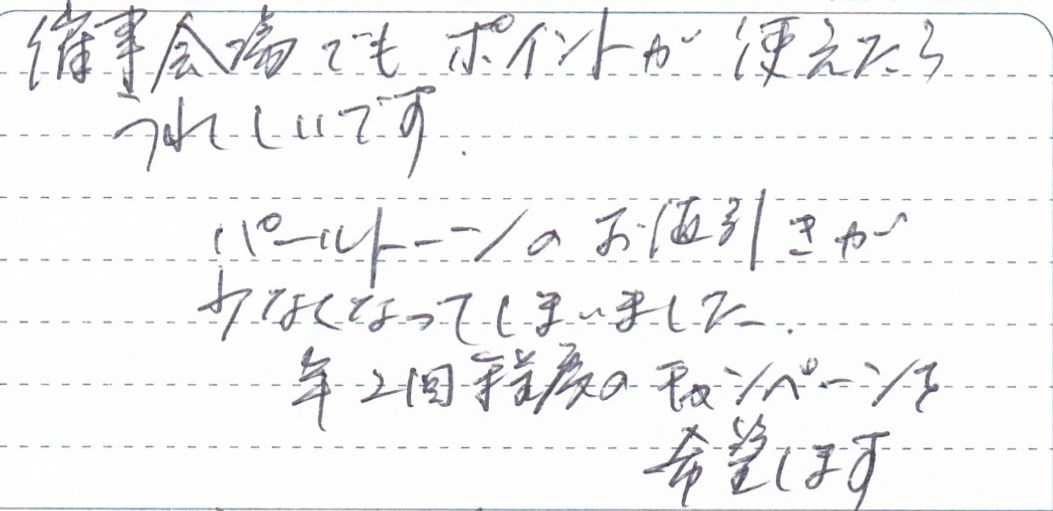 催事会場でもポイントが使えたら
うれしいです.
パールトーンのお値引きが
少なくなってしまいました.
年2回程度のキャンペーンを
希望します